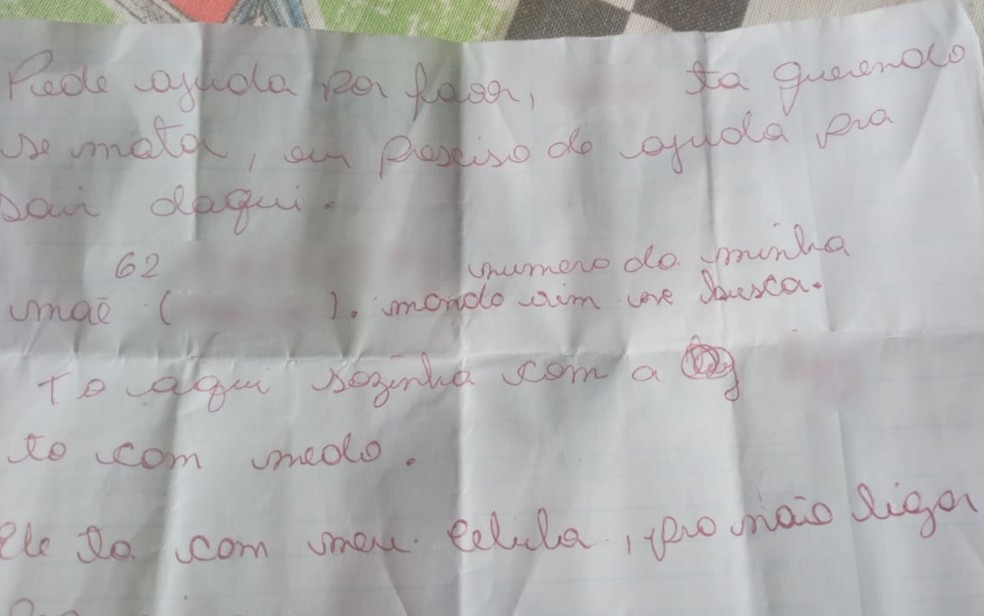 Pede ajuda por favor, ta querendo
se mata, eu presciso de ajuda pra
sair daqui.
62 numero da minha
mãe ( ). manda vim me busca.
to aqui sozinha com a
to com medo.
Ele ta com meu celula, pro não ligar